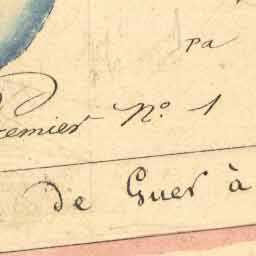 pa
remier N.º 1
de Guer à